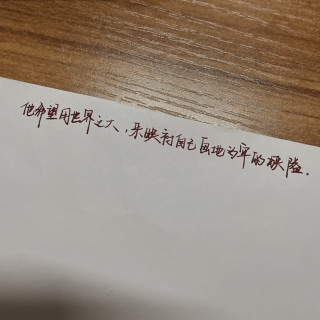 他希望用世界之大，来映衬自己画地为牢的狭隘.